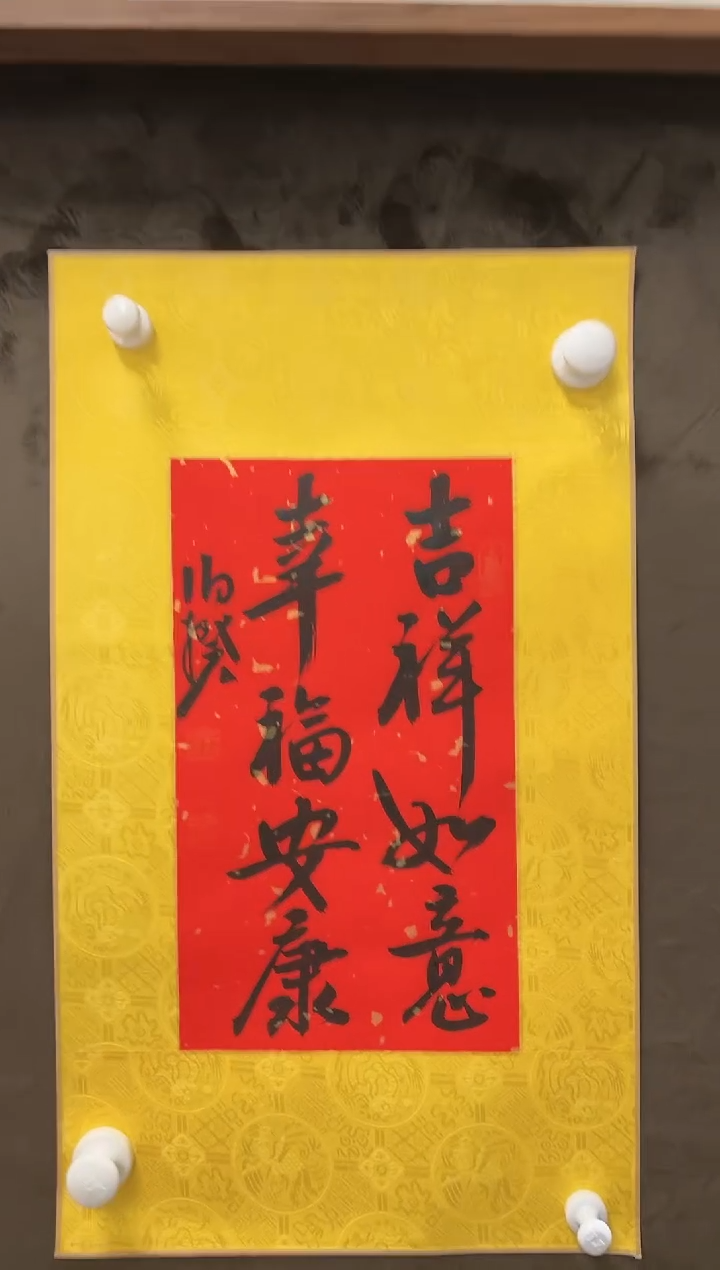 吉祥如意
幸福安康